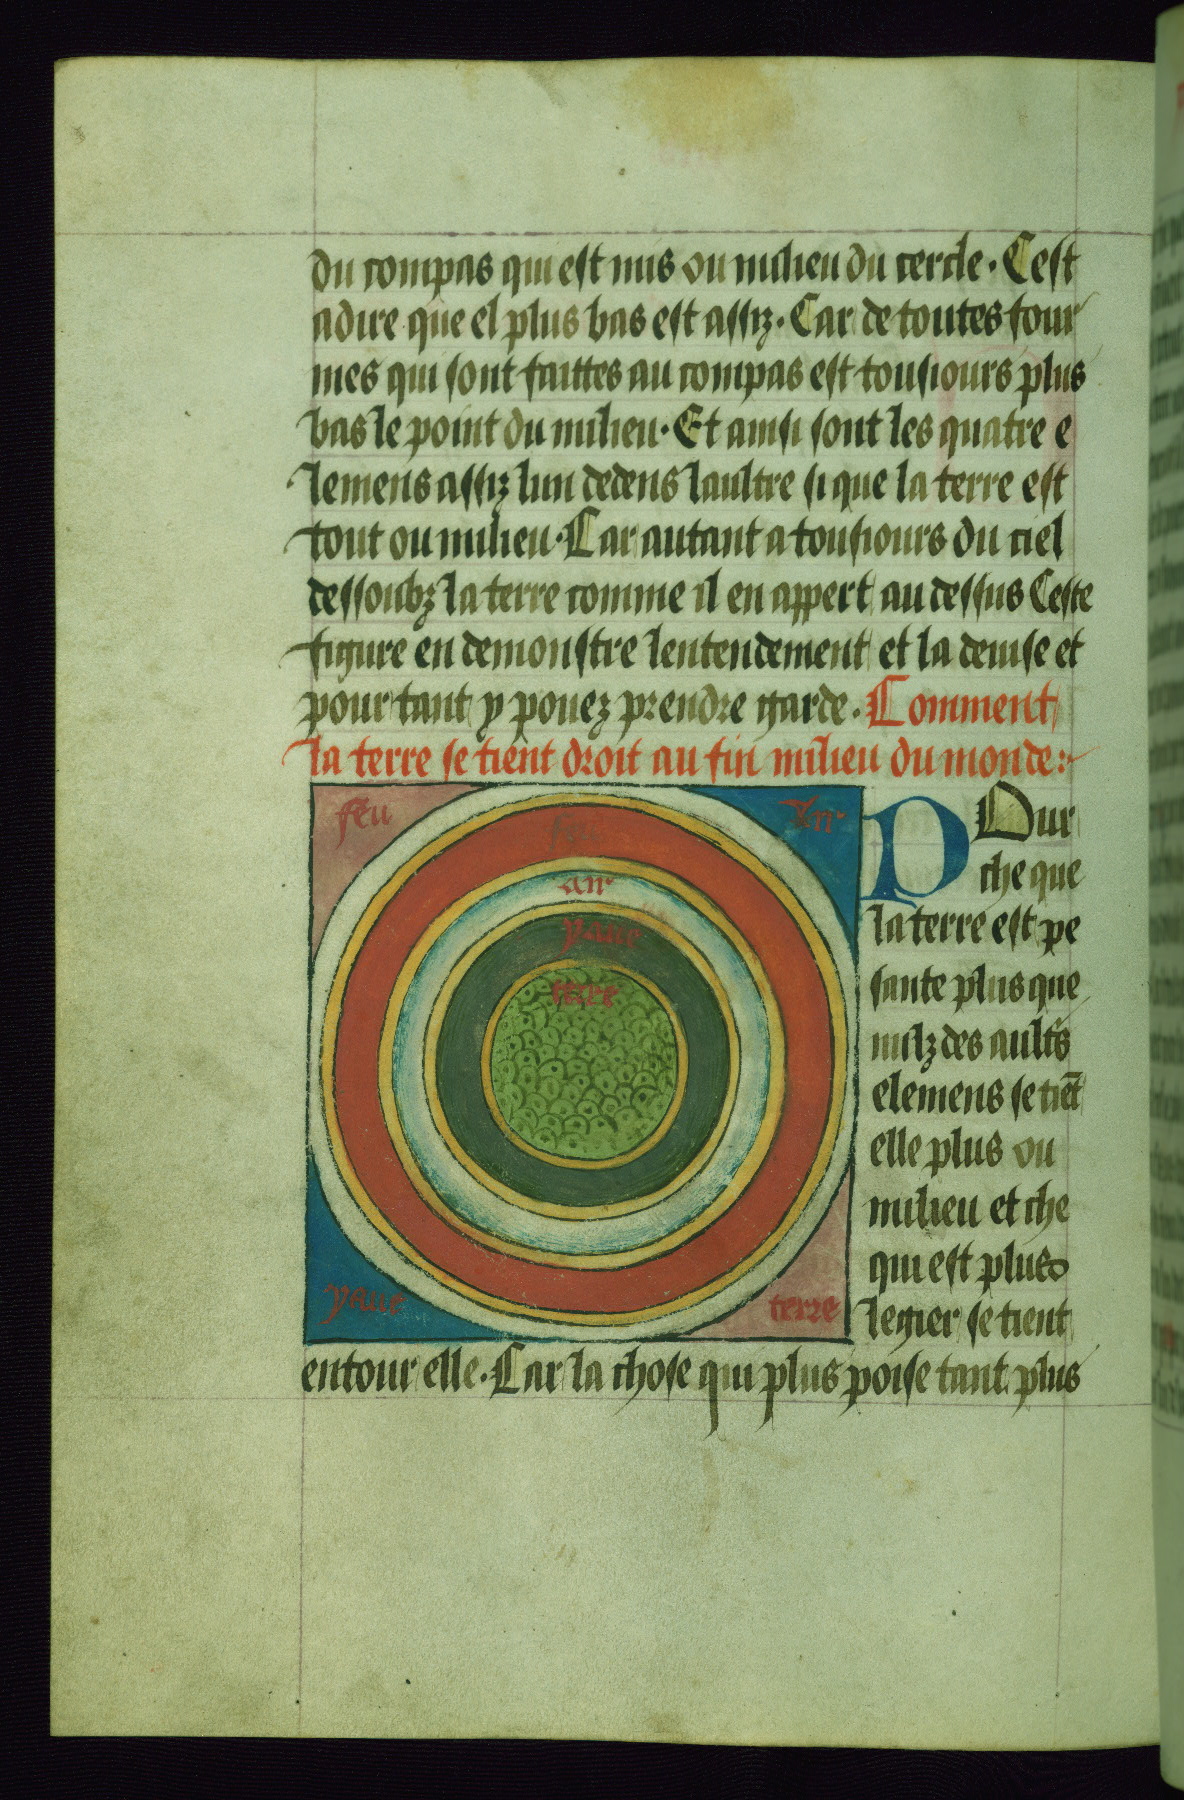 du compas qui est mis ou milieu du cercle. Cest
adire que el plus bas est assiz. Car de toutes four
mes qui sont faittes au compas est tousiours plus
bas le point du milieu. Et ainsi sont les quatre e
lemens assiz lun dedens laultre si que la terre est
tout ou milieu. Car autant a tousiours du ciel
dessoubz la terre comme il en appert au dessus Ceste
figure en demonstre lentendement et la deuise et
pour tant y pouez prendre garde. Comment
la terre se tient droit au fin milieu du monde:
feu
Air
feu
air
yaue
terre
yaue
terre
POur
che que
la terre est pe
sante plus que
nulz des ault's
elemens se tiēt
elle plus ou
milieu et che
qui est plus
legier se tient
entour elle. Car la chose qui plus poise tant plus